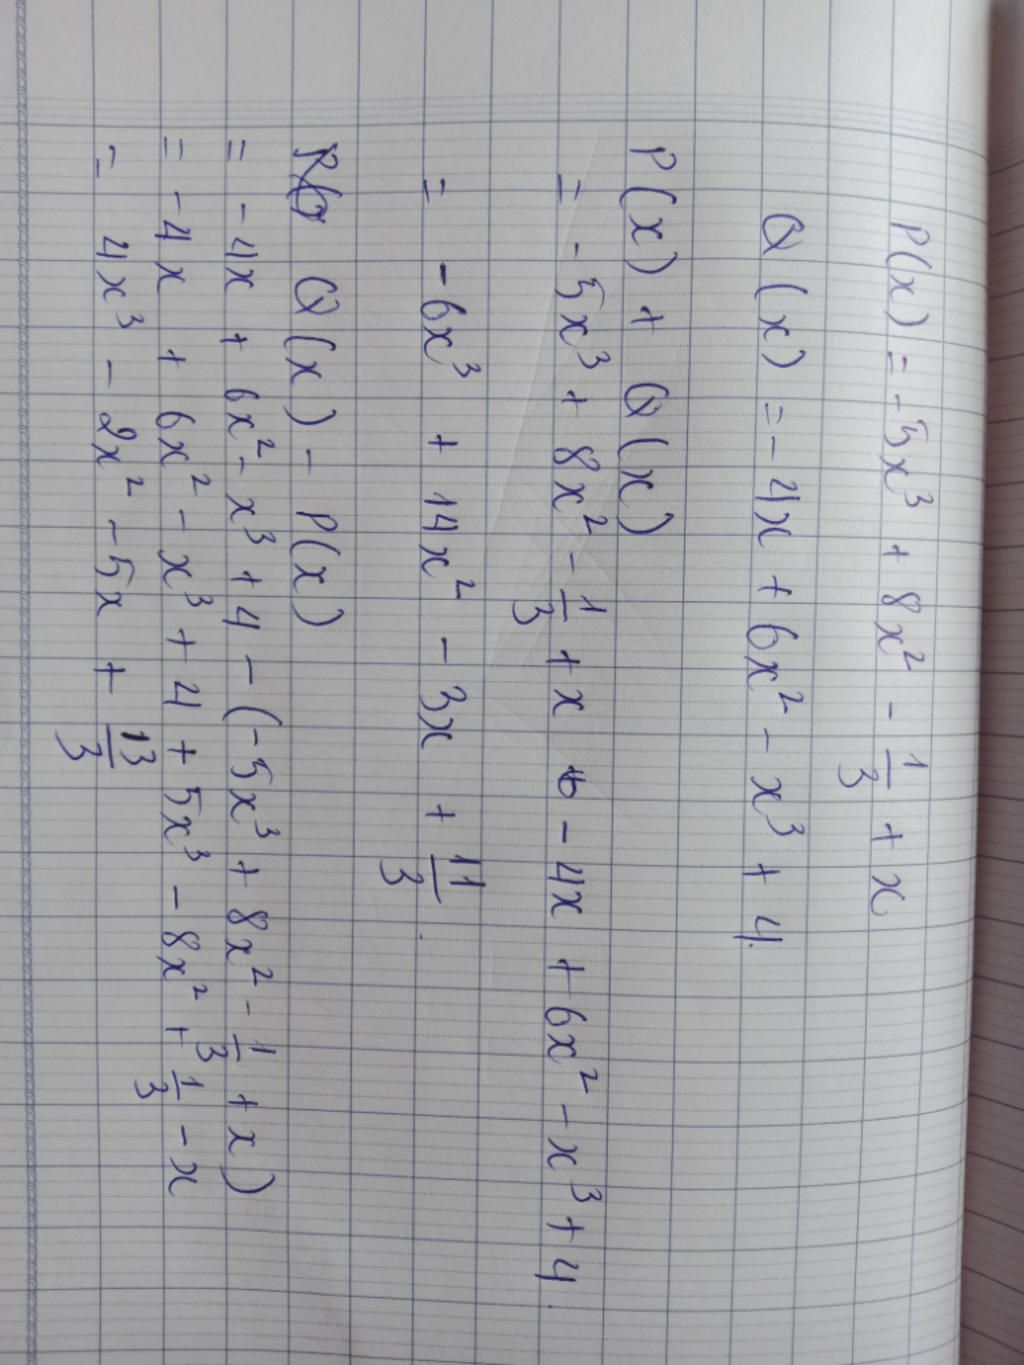 P(x) = -5x³ + 8x² - 1/3 + x
Q(x) = -4x + 6x² - x³ + 4.
P(x) + Q(x)
= -5x³ + 8x² - 1/3 + x - 4x + 6x² - x³ + 4.
= -6x³ + 14x² - 3x + 11/3.
Q(x) - P(x)
= -4x + 6x² - x³ + 4 - (-5x³ + 8x² - 1/3 + x)
= -4x + 6x² - x³ + 4 + 5x³ - 8x² + 1/3 - x
= 4x³ - 2x² - 5x + 13/3